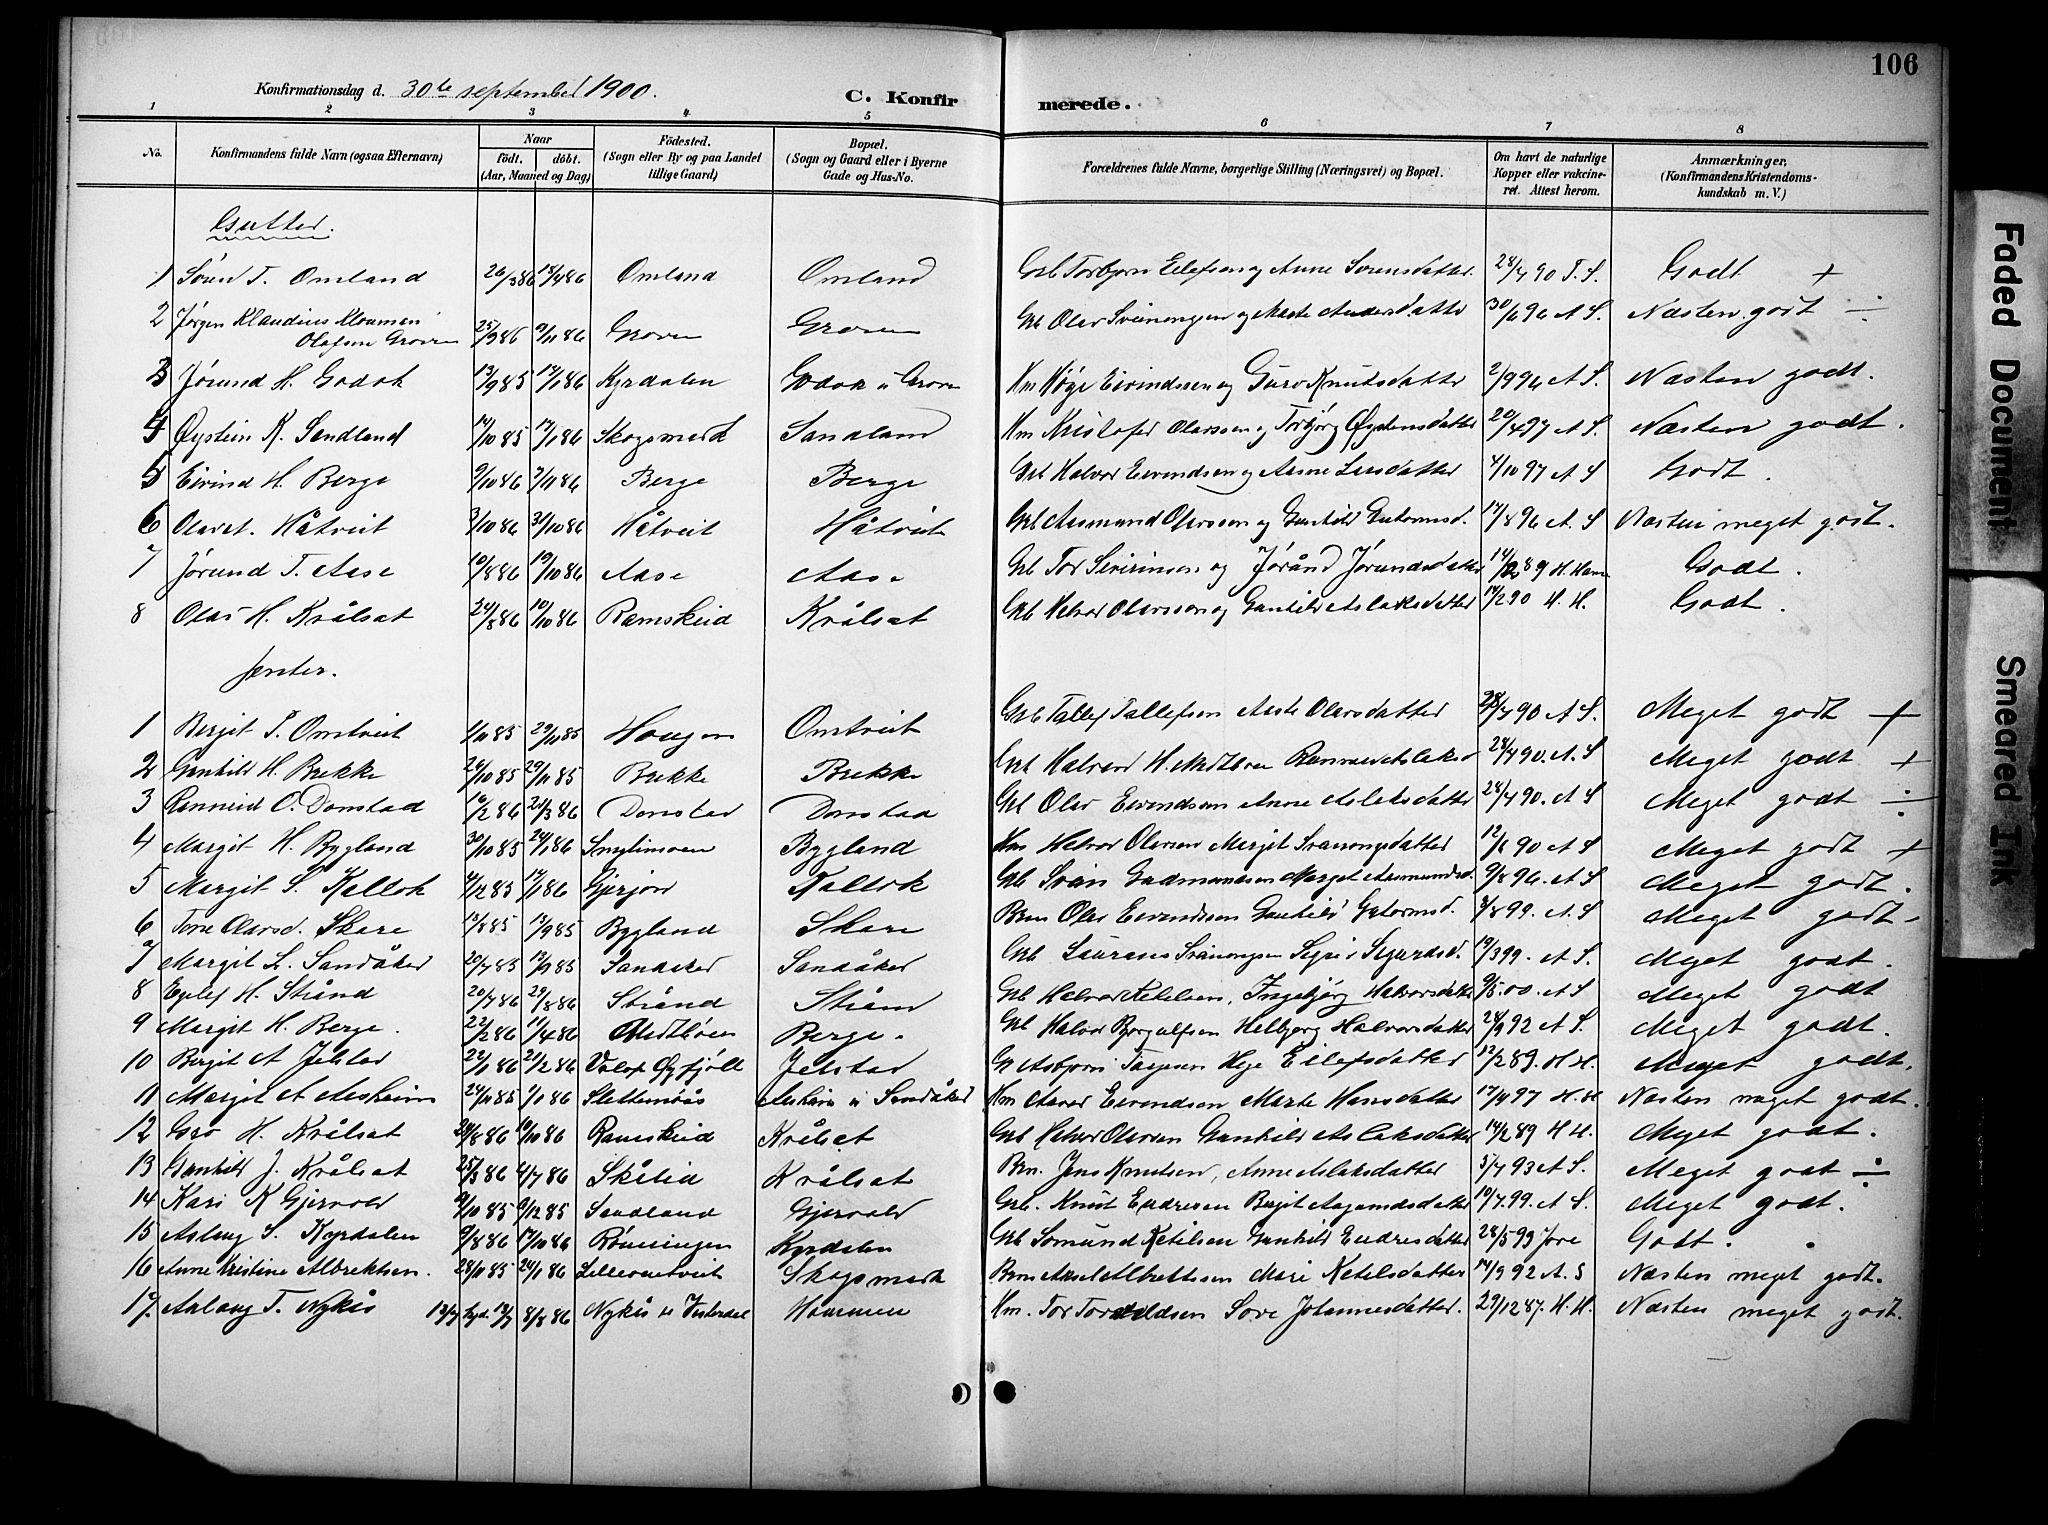 106
Konfirmationsdag d. 30te september 1900.
C. Konfirmerede.
1 2 3 4 5 6 7 8
No. Konfirmandens fulde Navn (ogsaa Efternavn) Naar födt. döbt. (Aar, Maaned og Dag) Födested. (Sogn eller By og paa Landet tillige Gaard) Bopæl. (Sogn og Gaard eller i Byerne Gade og Hus-No. Forældrenes fulde Navne, borgerlige Stilling (Næringsvei) og Bopæl. Om havt de naturlige Kopper eller vakcineret. Attest herom. Anmærkninger, (Konfirmandens Kristendomskundskab m. V.)
Gutter.
1 Søren T. Omland 26/3 86 18/4 86 Omland Omland Gbr Torbjørn Eilefsen og Anne Sørensdatter 28/4 90 T. S. Godt +
2 Jørgen Klaudius Kloumann Olafsen Groven 25/9 86 9/11 86 Groven Groven Gbr Olav Svenungsen og Aaste Andersdatter 30/6 96 A S. Næsten godt ÷
3 Jørund H. Godok 13/9 85 17/1 86 Kyrdalen Godok u Groven Hm Høge Eivindssen og Guro Knutsdatter 2/9 96 A S. Næsten godt.
4 Øystein K. Sandland 14/10 85 17/1 86 Skogsmark Sandland Hm Kristofer Olavssen og Torbjørg Øystensdatter 20/4 97 A S. Næsten godt.
5 Eivind H. Berge 9/10 86 7/11 86 Berge Berge Gbr Halvor Eivendsen og Anne Larsdatter 4/10 97 A S Godt.
6 Olav Håtveit 3/10 86 31/10 86 Håtveit Håtveit Gbr Aamund Olavssen og Gunhild Gutormsd. 17/8 96 A. S Næsten meget godt.
7 Jørund T. Aase 10/8 86 10/10 86 Aase Aase Gbr Tor Sivirinsen og Jørånd Jørundsdatter 14/2 89 H. Godt.
8 Olav H. Krålsat 24/8 86 10/10 86 Ramskeid Krålsat Gbr Halvor Olavssen og Gunhild Aslaksdatter 14/2 90 H. H. Godt.
Jenter.
1 Bergit T. Omtveit 1/11 85 29/11 85 Haugen Omtveit Gbr Tallef Tallefsen Aaste Olavsdatter 28/4 90 A S. Meget godt +
2 Gunhild H. Brekke 24/10 85 29/11 85 Brekke Brekke Gbr Halvord H. Medtbøen Ranneid Aslaksd 28/4 90. A. S Meget godt +
3 Ranneid O. Domstad 10/2 86 21/3 86 Domstad Domstad Gbr Olav Eivendsen Anne Aslaksdatter 28/4 90. A S Meget godt ÷
4 Margit H. Bygland 30/10 85 24/1 86 Bygland Hm Halvor Olavsen Margit Svenungsdatter 12/6 90 A S Meget godt +
5 Margit S. Kallok 4/12 85 17/1 86 Gjerjord Kallok Gbr Svein Gudmundsen Margit Aamundsd. 9/8 96. A S Meget godt.
6 Tone Olavsd. Skare 13/8 85 13/9 85 Bygland Skare Bm Olav Eivendsen Gunhild Gutormsd. 3/8 99. A. S Meget godt -
7 Margit L. Sandåker 20/7 85 13/9 85 Sandåker Sandåker Gbr Laurans Svenungsen Sigrid Sigurdsd. 19/3 99. A S. Meget godt.
8 H. Strånd 20/7 86 29/8 86 Strånd Strånd Gbr Halvor Ketilsen, Ingebjørg Halvorsdatter 9/5 00. A S Meget godt
9 Margit H. Berge. 22/2 86 11/4 86 Medtbøen Berge. Gbr Halvor Bergulfsen Helbjørg Halvorsdatter 28/9 92 A S. Meget godt.
10 Bergit A Jelstad 22/1 86 21/2 86 Valer Øyfjell Jelstad Gbr Asbjørn Tarjesen Hege Eilefsdatter 12/2 89. H H. Meget godt.
11 Margit A Aasheim 24/11 85 1/1 86 Slettemoås Aasheim u Sandåker Hm Aavar Eivendsen Marte Hansdatter 17/4 97 H. H Næsten meget godt.
12 Gro H. Krålsat 24/8 86 10/10 86 Ramskeid Krålsat Gbr Halvor Olavsen Gunhild Aslaksdatter 14/2 89 H H. Meget godt.
13 Gunhild J. Krålsat 25/3 86 4/7 86 Skålid Krålsat Bm. Jens Knudsen, Anne Aslaksdatter 5/7 93 A S. Meget godt ÷
14 Kari K Gjervold 9/10 85 9/12 85 Sandland Gjervold Gbr. Knut Endresen Bergit Aagundsdatter 10/7 99. A S. Meget godt.
15 Aslaug S. Kyrdalen 9/8 86 17/10 86 Rønningen Kyrdalen Gbr Sømund Ketilsen Gunhild Endresdatter 28/5 99 Jore Godt.
16 Anne Kristine Albrektsen. 28/11 85 24/1 86 Skogsmark Bm Aksel Albrektssen Mari Ketilsdatter 14/9 92 A. S Næsten meget godt.
17. Aslaug T. Nykås 13/7 13/7 8/8 86 Nykås u Vesterdal Hommen Hm. Tor Toraldsen Sove Johannesdatter. 29/12 87. H. H. Næsten meget godt.
Faded Document
Smeared Ink